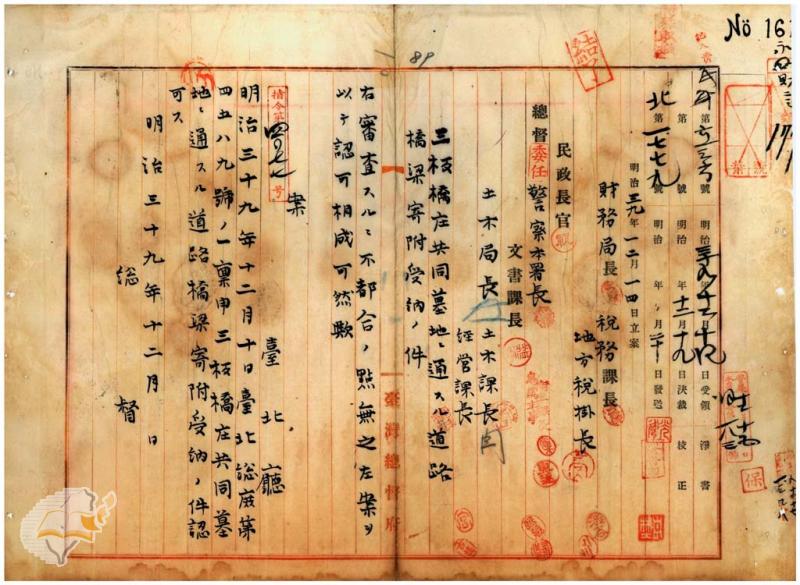 No 161
永
財
明治三九年十二月十四日受領
淨書
北第一七七九號
明治 年十二月十九日決裁
校正
第 號
明治 年 月二十日發送
明治三九年一二月一四日立案
財務局長
稅務課長
地方稅掛長
民政長官
總督
委任
警察本署長
文書課長
土木局長
土木課長
經營課長
三板橋庄共同墓地ニ通スル道路
橋梁寄附受納ノ件
右審査スルニ不都合ノ點無之左案ヲ
以テ認可相成可然歟
指令第四 號
案
臺北廳
明治三十九年十二月十日臺北總庶第
四五八九號ノ一稟申三板橋庄共同墓
地ニ通スル道路橋梁寄附受納ノ件認
可ス
明治三十九年十二月 日
總督
臺灣總督府
結了
保
89